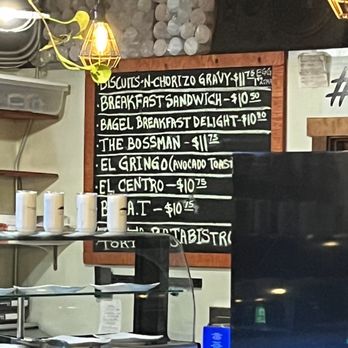 BISCUITS-N-CHORIZO GRAVY-$11.75 EGG
· BREAKFAST SANDWICH-$10.50
· BAGEL BREAKFAST DELIGHT-$10
· THE BOSSMAN - $11.75
· EL GRINGO (AVOCADO TOAST
· EL CENTRO - $10.75
A.T - $10.75
#